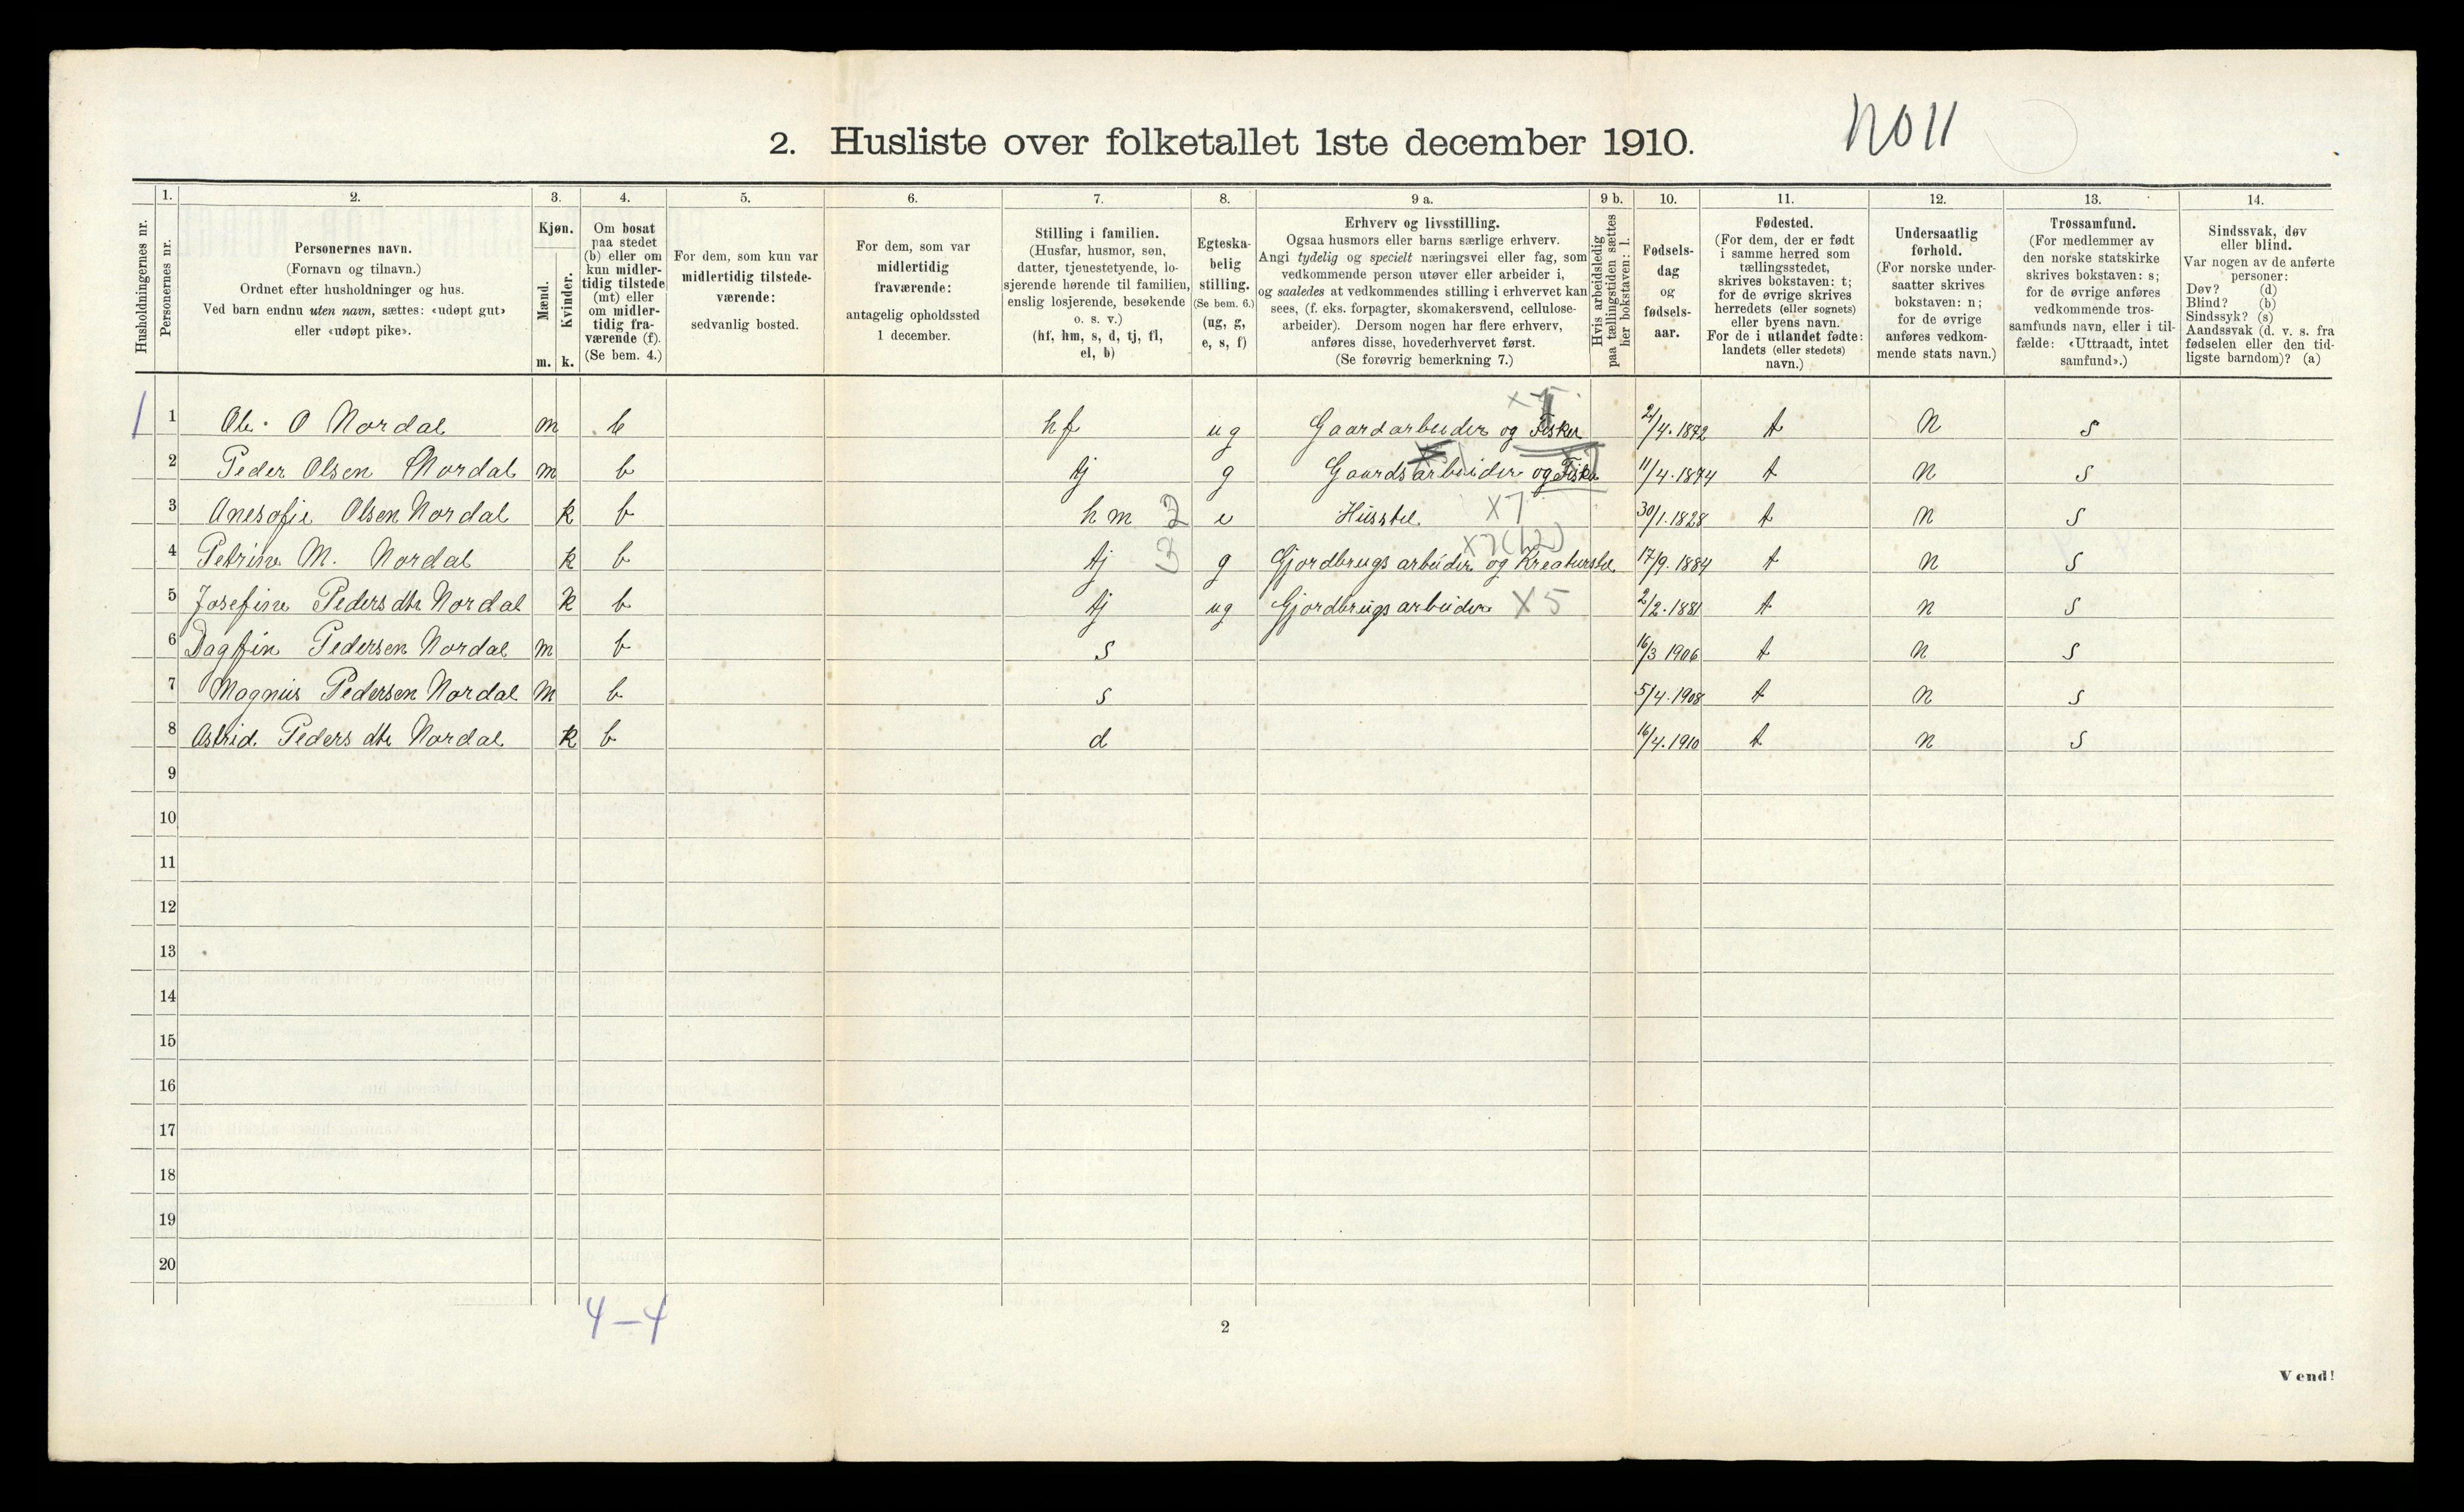 2. Husliste over folketallet 1ste december 1910.
No 11
Husholdningernes nr.
1.
Personernes nr.
2.
Personernes navn.
(Fornavn og tilnavn.)
Ordnet efter husholdninger og hus.
Ved barn endnu uten navn, sættes: «udøpt gut»
eller «udøpt pike».
3.
Kjøn.
Mænd.
Kvinder.
m. k.
4.
Om bosat
paa stedet
(b) eller om
kun midler-
tidig tilstede
(mt) eller
om midler-
tidig fra-
værende (f).
(Se bem. 4.)
5.
For dem, som kun var
midlertidig tilstede-
værende:
sedvanlig bosted.
6.
For dem, som var
midlertidig
fraværende:
antagelig opholdssted
1 december.
7.
Stilling i familien.
(Husfar, husmor, søn,
datter, tjenestetyende, lo-
sjerende hørende til familien,
enslig losjerende, besøkende
o. s. v.)
(hf, hm, s, d, tj, fl,
el, b)
8.
Egteska-
belig
stilling.
(Se bem. 6.)
(ug, g,
e, s, f)
9 a.
Erhverv og livsstilling.
Ogsaa husmors eller barns særlige erhverv.
Angi tydelig og specielt næringsvei eller fag, som
vedkommende person utøver eller arbeider i,
og saaledes at vedkommendes stilling i erhvervet kan
sees, (f. eks. forpagter, skomakersvend, cellulose-
arbeider). Dersom nogen har flere erhverv,
anføres disse, hovederhvervet først.
(Se forøvrig bemerkning 7.)
9 b.
Hvis arbeidsledig
paa tællingstiden sættes
her bokstaven: l.
10.
Fødsels-
dag
og
fødsels-
aar.
11.
Fødested.
(For dem, der er født
i samme herred som
tællingsstedet,
skrives bokstaven: t;
for de øvrige skrives
herredets (eller sognets)
eller byens navn.
For de i utlandet fødte:
landets (eller stedets)
navn.)
12.
Undersaatlig
forhold.
(For norske under-
saatter skrives
bokstaven: n;
for de øvrige
anføres vedkom-
mende stats navn.)
13.
Trossamfund.
(For medlemmer av
den norske statskirke
skrives bokstaven: s;
for de øvrige anføres
vedkommende tros-
samfunds navn, eller i til-
fælde: «Uttraadt, intet
samfund».)
14.
Sindssvak, døv
eller blind.
Var nogen av de anførte
personer:
Døv? (d)
Blind? (b)
Sindssyk? (s)
Aandssvak (d. v. s. fra
fødselen eller den tid-
ligste barndom)? (a)
1 1 Ole O Nordal m b hf ug Gaardarbeider og Fisker 2/4.1872 t N s
2 Peder Olsen Nordal m b tj g Gaardsarbeider og Fisker 11/4.1874 t N s
3 Anesofie Olsen Nordal k b hm 2 e Husstel X7 30/1.1828 t N s
4 Petrine M. Nordal k b tj 3 g Gjordbrugsarbeider og Kreaturstel X7(12) 17/9.1884 t N s
5 Josefine Pedersdtr Nordal k b tj ug Gjordbrugsarbeider X5 2/2.1881 t N s
6 Dagfin Pedersen Nordal m b s 16/3 1906 t N s
7 Magnus Pedersen Nordal m b s 5/4.1908 t N s
8 Astrid Pedersdtr Nordal k b d 16/4.1910 t N s
9
10
11
12
13
14
15
16
17
18
19
20
4-4
2
Vend!